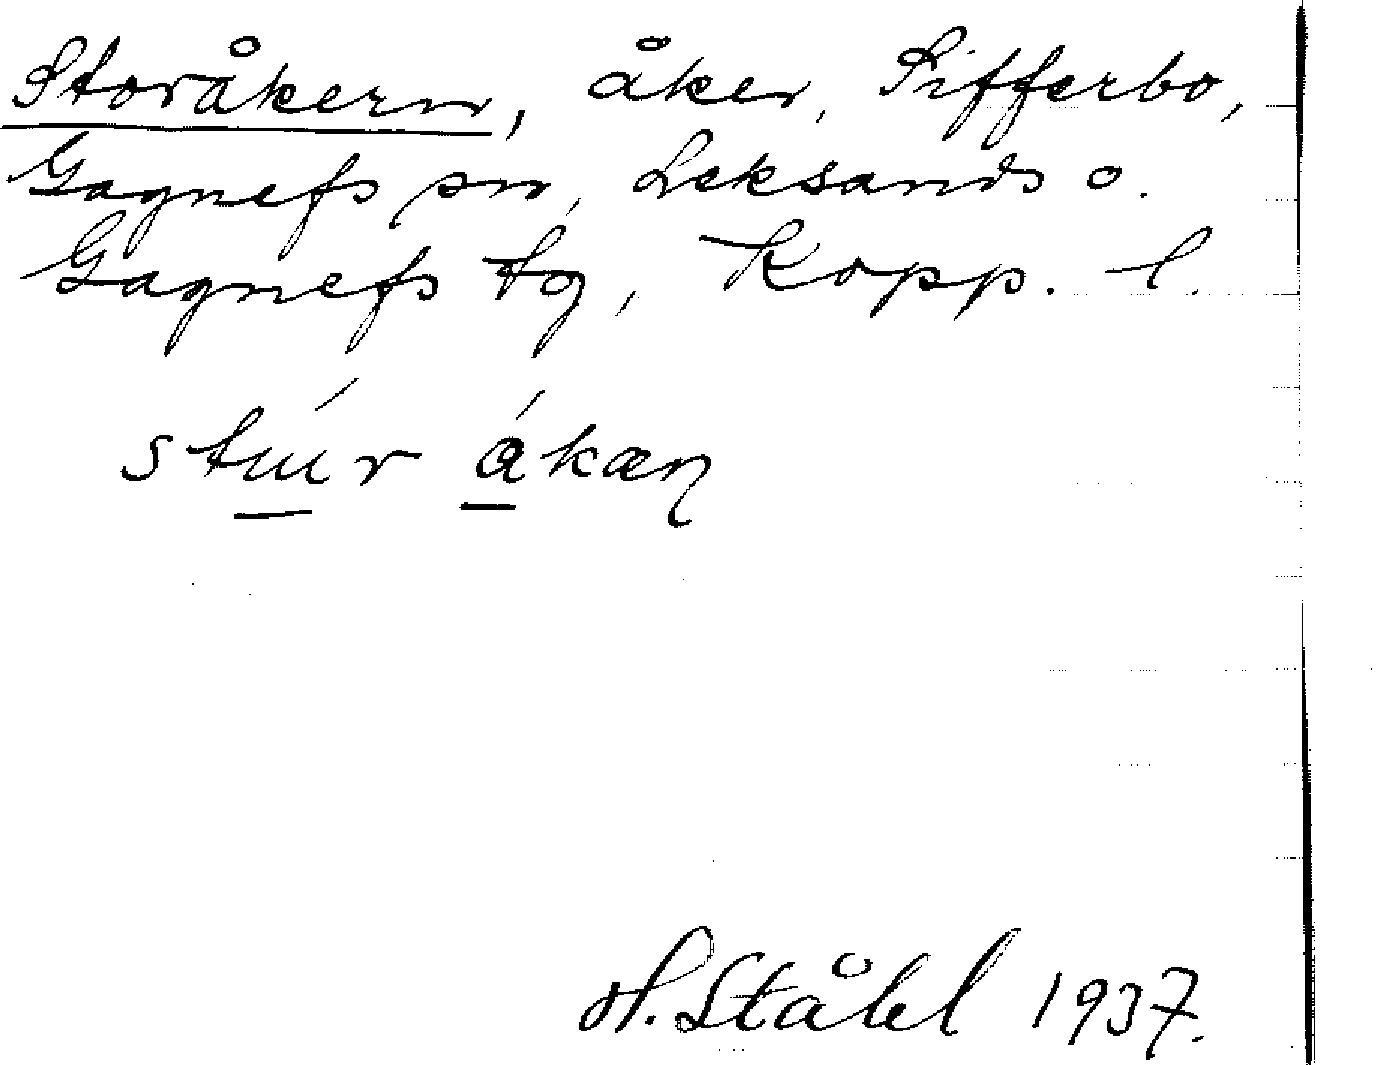 Storåkern, åker, Sifferbo,
Gagnefs sn, Leksands o.
Gagnefs tg, Kopp. l.
stúr ákæn
H. Ståhl 1937.